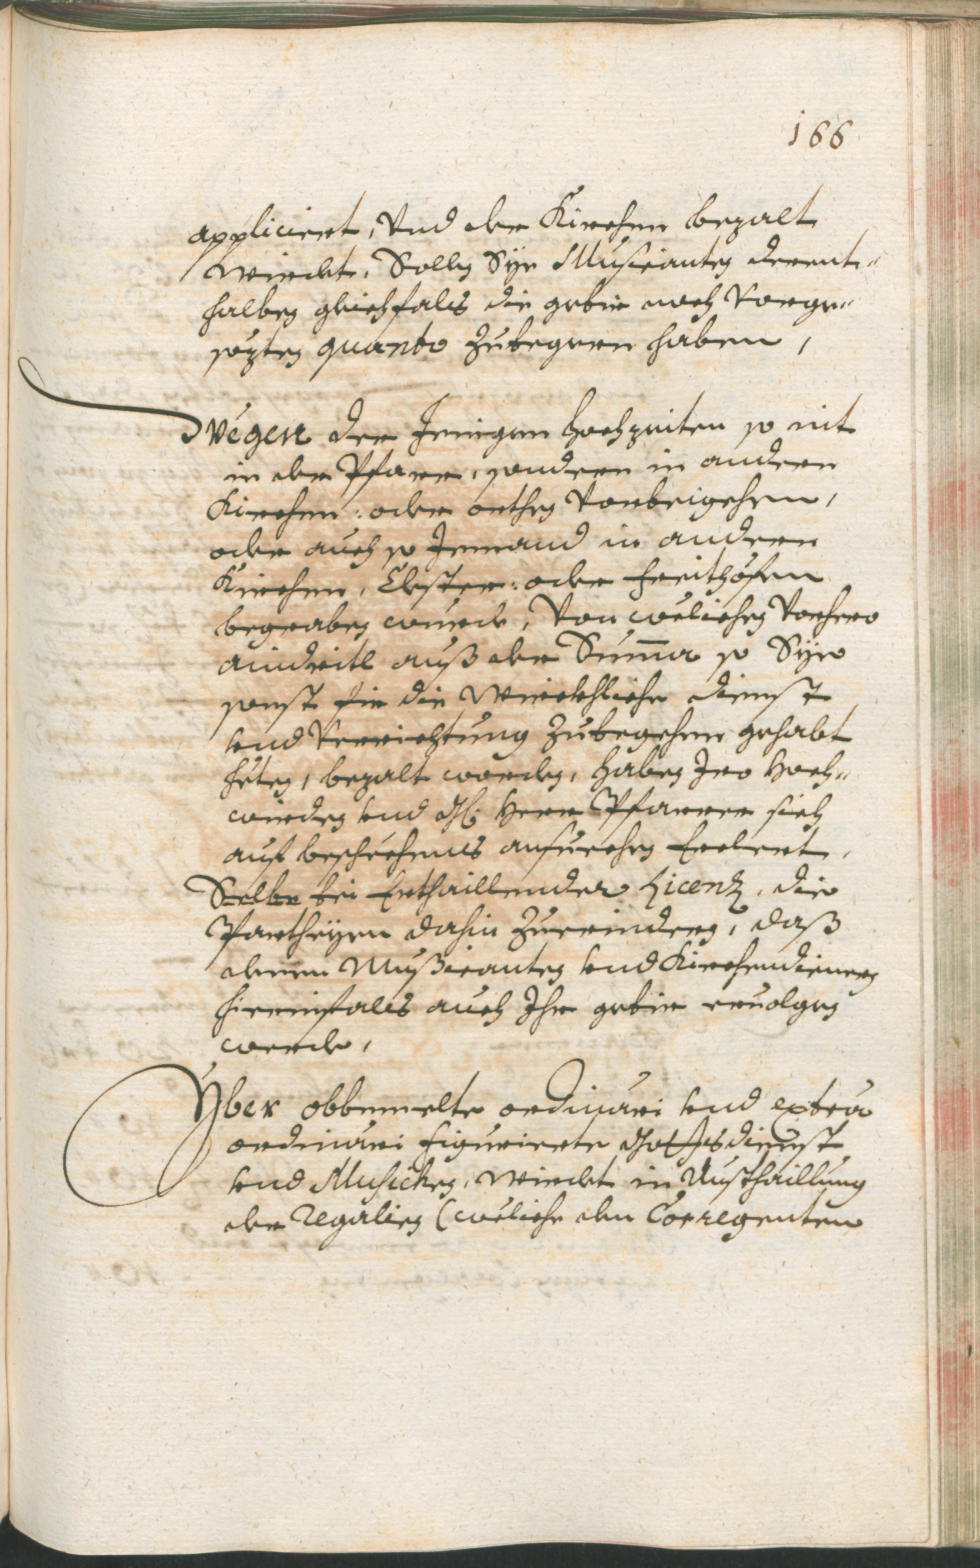 166
appliciert, Vnd der Kirchen bezalt
wierdt. Sollen Sye Musicanten derent-
halben gleichfals die gebir nach Vorge-
sezten quanto zubegern haben,
Wegen der Jenigen hochzeiten so nit
in der Pfarr, sondern in andern
Kirchen: oder orthen Vorbeigehen,
oder auch so Jemand in andern
Kirchen, Clöster: oder freithöfen
begraben wurde, Von welichen Vorhero
aindritl auß der Summa so Sye
sonst für die Würckhliche dienst
und Verrichtung zubegehrn gehabt
heten, bezalt worden, haben Iro Hoch-
würden und Herr Pfarrer sich
auf beschechenes ansuechen Erclert,
Selbe bei Erthaillender Licenz, die
Partheyen dahin zuerindern, daß
denen Mußicanten und Kirchendienern
hierinfals auch Ihr gebir ervolgen
werde,
Yber obbemelte ordinari und extra
ordinari figurierte Gottsdienst
und Musicken, wierdt in Austhaillung
der Regalien (weliche den Corregenten